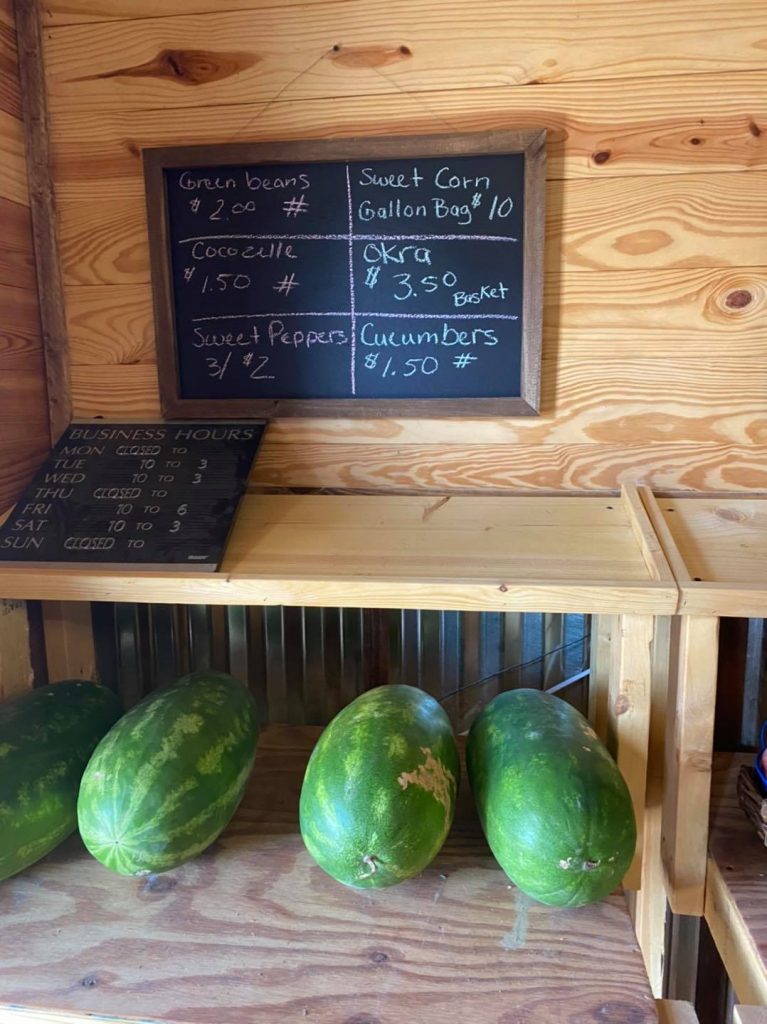 Green beans
$ 2.00 #
Sweet Corn
Gallon Bag $10
Cocozelle
$1.50 #
Okra
$ 3.50 Basket
Sweet Peppers
3/ $2
Cucumbers
$1.50 #
BUSINESS HOURS
MON CLOSED TO
TUE 10 TO 3
WED 10 TO 3
THU CLOSED TO
FRI 10 TO 6
SAT 10 TO 3
SUN CLOSED TO